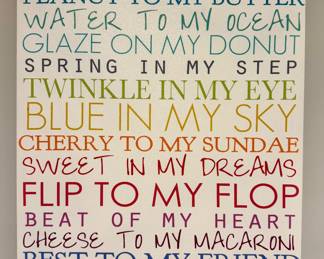 PEANUT TO MY BUTTER
WATER TO MY OCEAN
GLAZE ON MY DONUT
SPRING IN MY STEP
TWINKLE IN MY EYE
BLUE IN MY SKY
CHERRY TO MY SUNDAE
SWEET IN MY DREAMS
FLIP TO MY FLOP
BEAT OF MY HEART
CHEESE TO MY MACARONI
BEST TO MY FRIEND